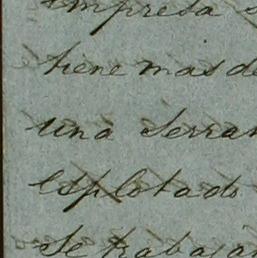 impresa
tiene mas de
una Serran
esplotado
se trabajan